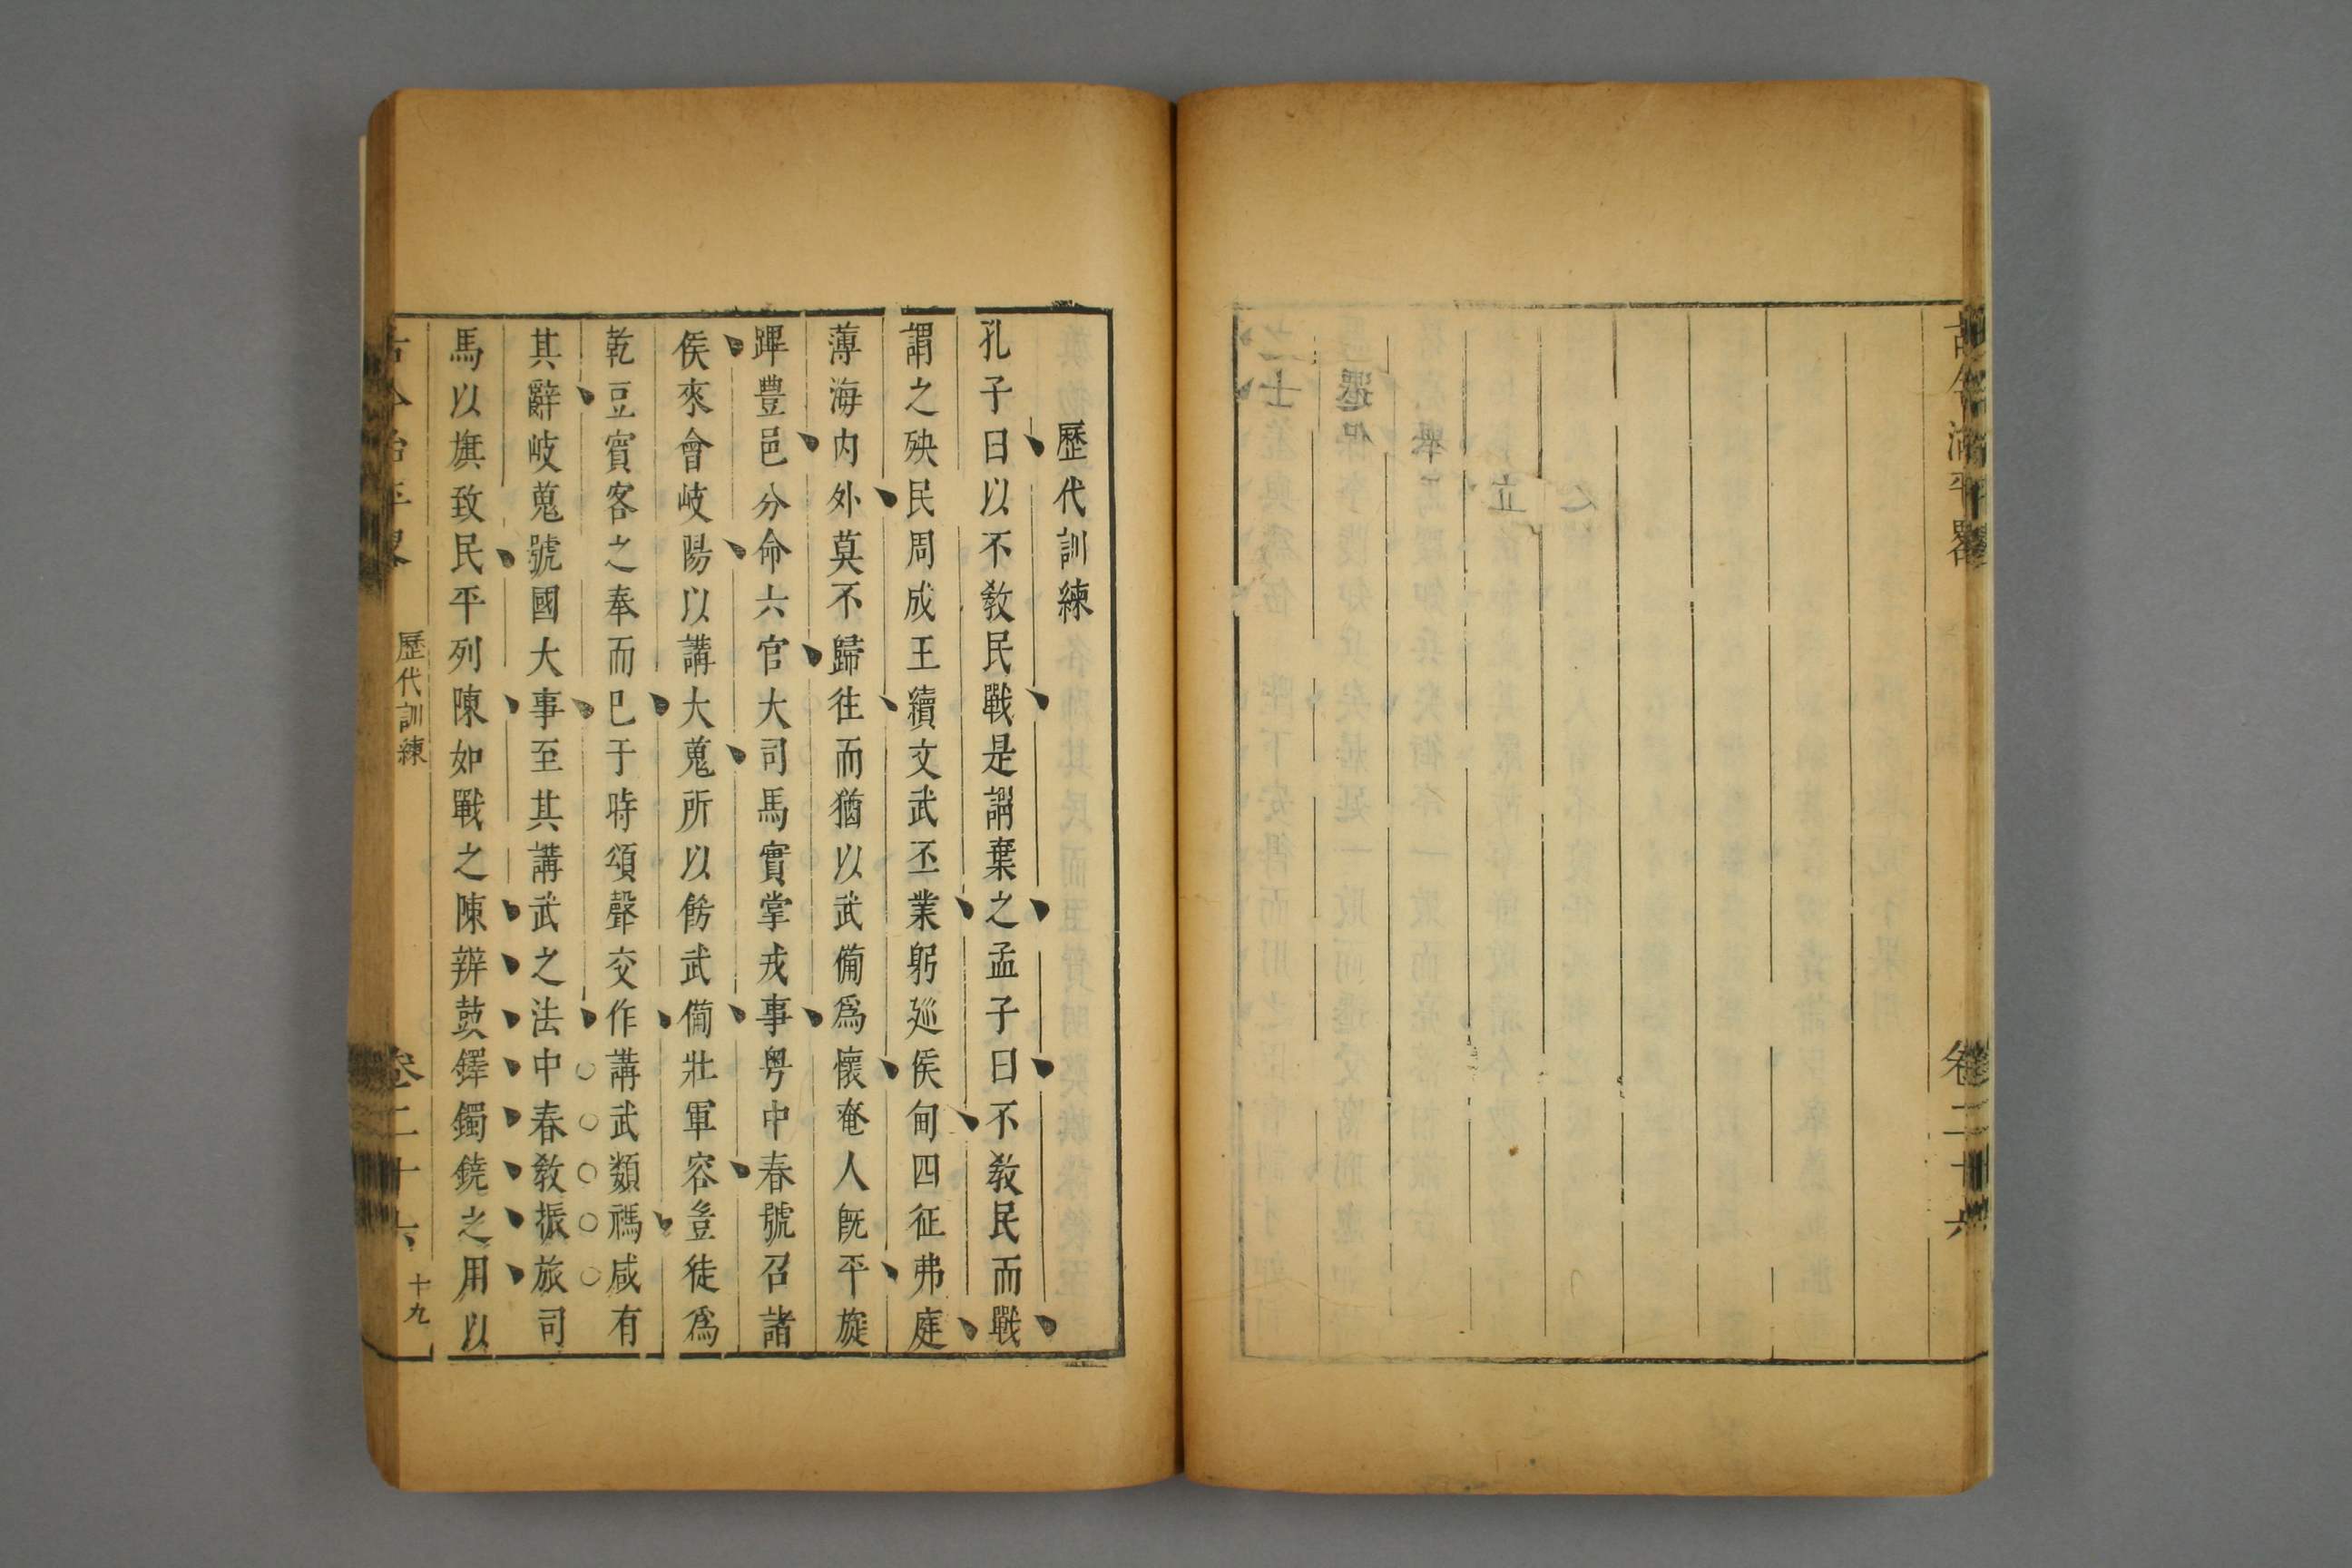 古今治平畧
卷二十六
歷代訓練
孔子曰以不敎民戰是謂棄之孟子曰不敎民而戰
謂之殃民周成王纘文武丕業躬廵侯甸四征弗庭
薄海內外莫不歸往而猶以武備爲懷奄人旣平旋
蹕豐邑分命六官大司馬實掌戎事粤中春號召諸
侯來會岐陽以講大蒐所以餙武備壯軍容豈徒爲
乾豆賓客之奉而已于時頌聲交作講武類禡咸有
其辭岐蒐號國大事至其講武之法中春敎振旅司
馬以旗致民平列陳如戰之陳辨鼓鐸鐲鐃之用以
古今治平畧
歷代訓練
卷二十六
十九